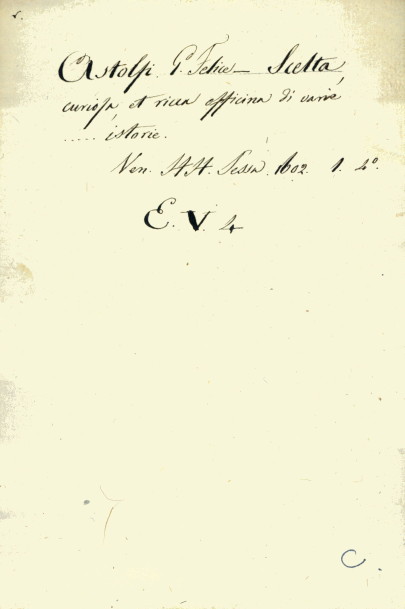 Astolfi G. Felice — Scelta
curiosa et ricca officina di varie
..... istorie.
Ven. HH. Sessa 1602. 1. 4º.
E. V. 4
C